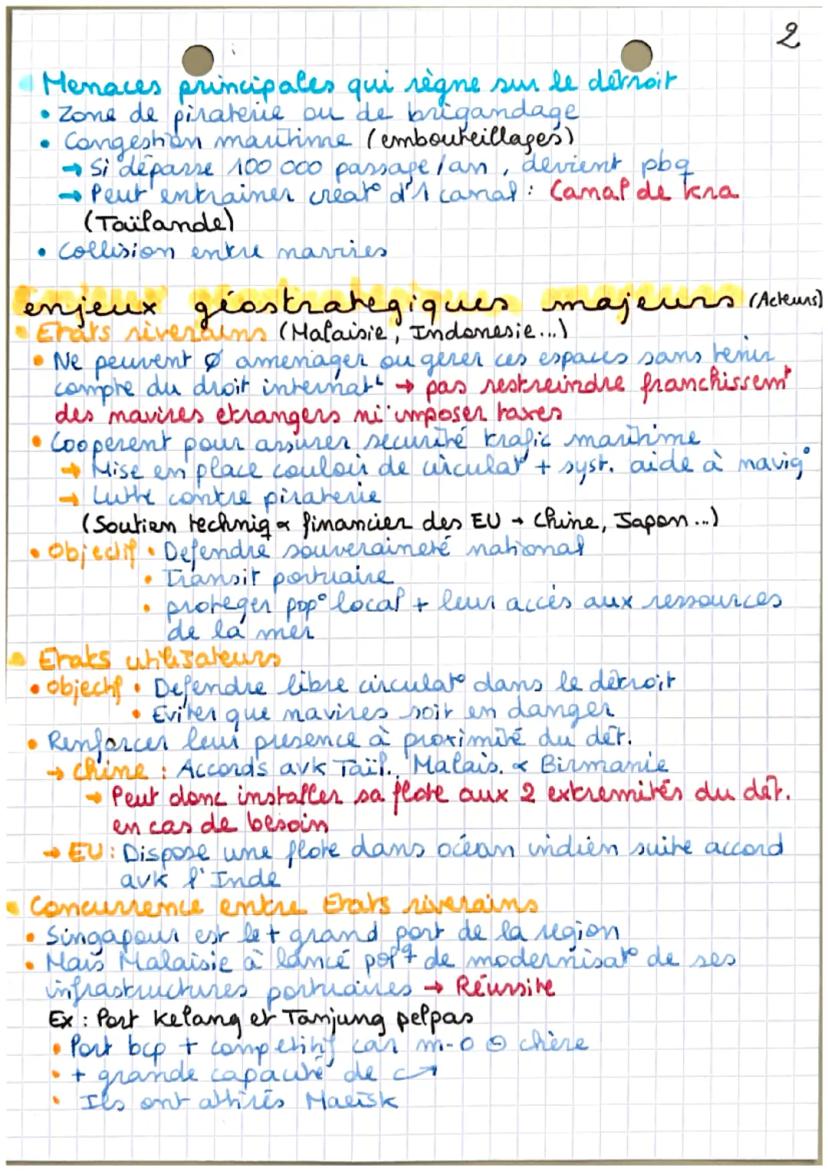 2
Menaces principales qui règne sur le détroit
• Zone de piraterie ou de brigandage
• Congestion maritime (embouteillages)
→ Si dépasse 100 000 passage/an, devient pbq
→ Peut entrainer creat° d'1 canal : Camal de kra
(Taïlande)
• Collision entre navires
enjeux géostrategiques majeurs (Acteurs)
Etats riverains (Malaisie, Indonesie...)
• Ne peuvent ∅ amenager ou gérer ces espaces sans tenir
compte du droit internat^L → pas restreindre franchissem^t
des navires etrangers ni imposer taxes
• Cooperent pour assurer securité trafic maritime
→ Mise en place couloir de circulat° + syst. aide à navig°
→ Lutte contre piraterie
(Soutien techniq ∝ financier des EU → Chine, Japon...)
• Objectif • Defendre souveraineté national
• Transit portuaire
• proteger pop° local + leur accès aux ressources
de la mer
Etats utilisateurs
• objectif • Defendre libre circulat° dans le détroit
• Eviter que navires soit en danger
• Renforcer leur presence à proximité du dét.
→ Chine : Accords avk Taïl., Malais. ∝ Birmanie
→ Peut donc installer sa flote aux 2 extremités du dét.
en cas de besoin
→ EU : Dispose une flote dans océan indien suite accord
avk l'Inde
Concurrence entre Etats riverains
• Singapour est le + grand port de la region
• Mais Malaisie à lancé pol^q de modernisat° de ses
infrastructures portuaires → Réussite
Ex : Port Kelang et Tanjung pelpas
• Port bcp + competitif car m-o ⊖ chère
• + grande capacité de
• Ils ont attirés Maersk